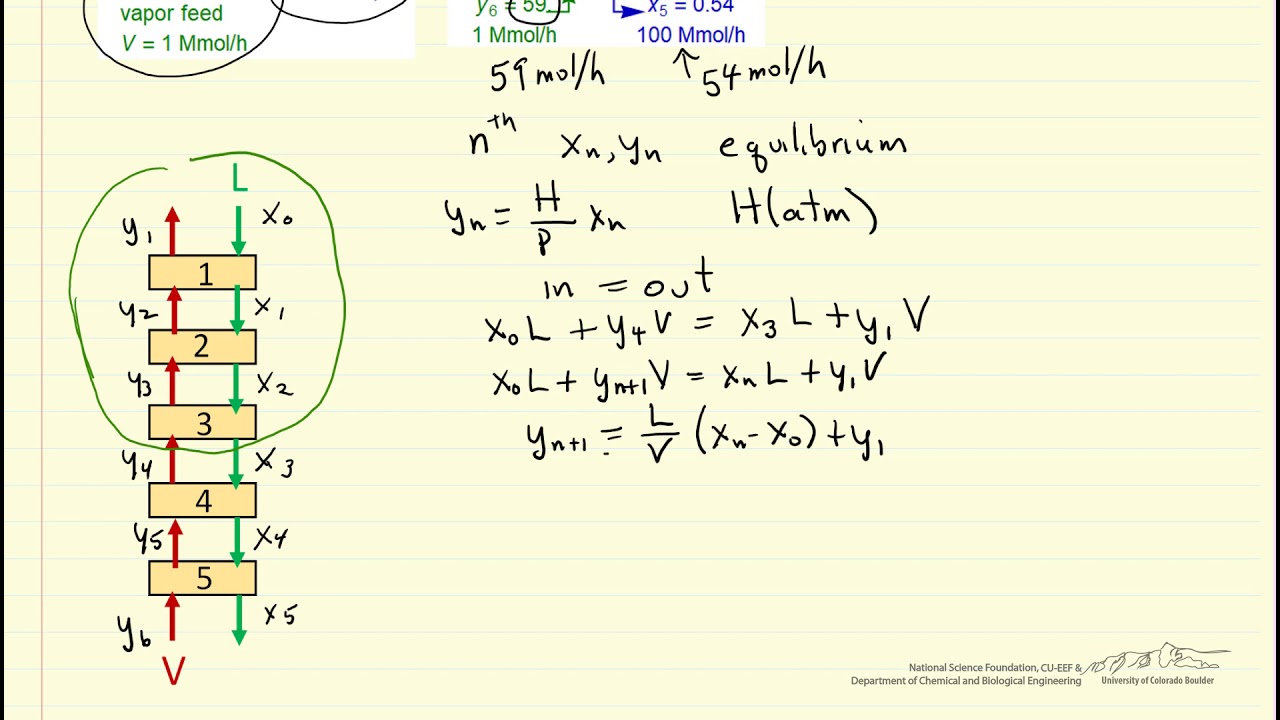 vapor feed
V = 1 Mmol/h
y₆ = 59
x₅ = 0.54
1 Mmol/h
100 Mmol/h
59 mol/h
↑54 mol/h
nᵗʰ xₙ, yₙ equilibrium
yₙ = H/P xₙ H(atm)
in = out
x₀L + y₄V = x₃L + y₁V
x₀L + yₙ₊₁V = xₙL + y₁V
yₙ₊₁ = L/V (xₙ - x₀) + y₁
L
y₁ x₀
1
y₂ x₁
2
y₃ x₂
3
y₄ x₃
4
y₅ x₄
5
y₆ x₅
V
National Science Foundation, CU-EEF &
Department of Chemical and Biological Engineering
University of Colorado Boulder